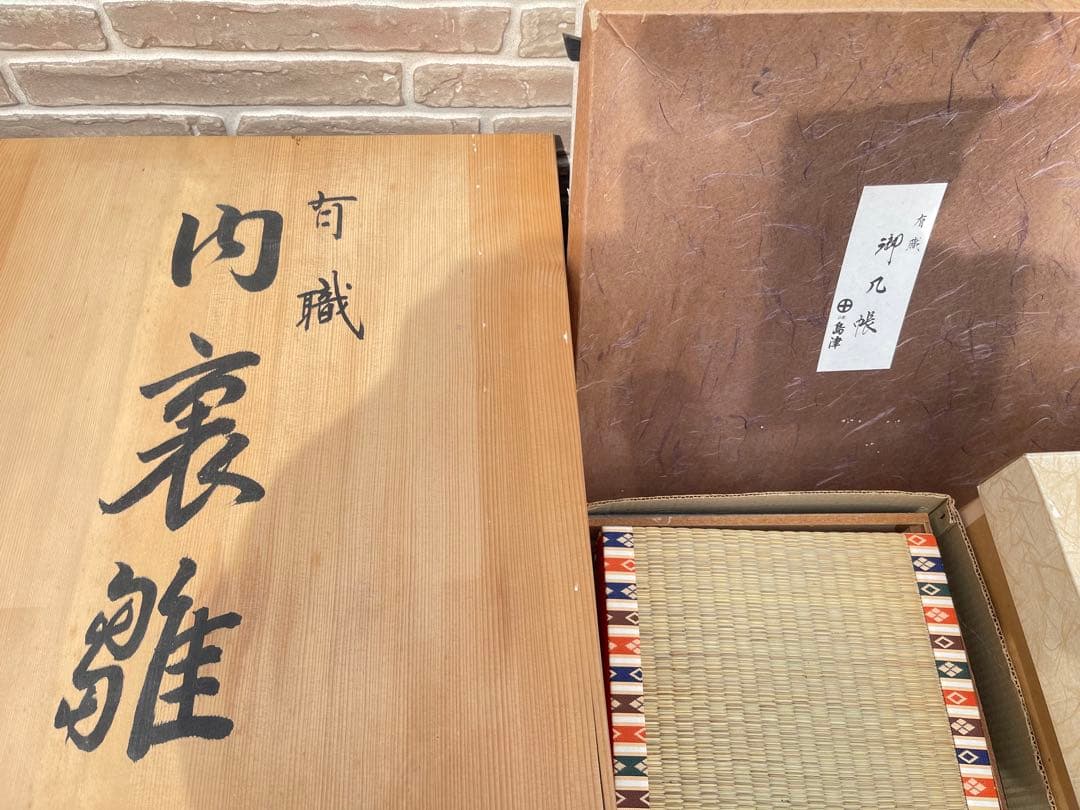 有職
内裏雛
有職
御几帳
島津